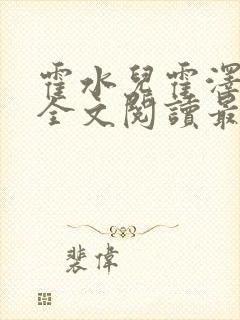 霍水兒霍澤
全文閱讀最
裴偉